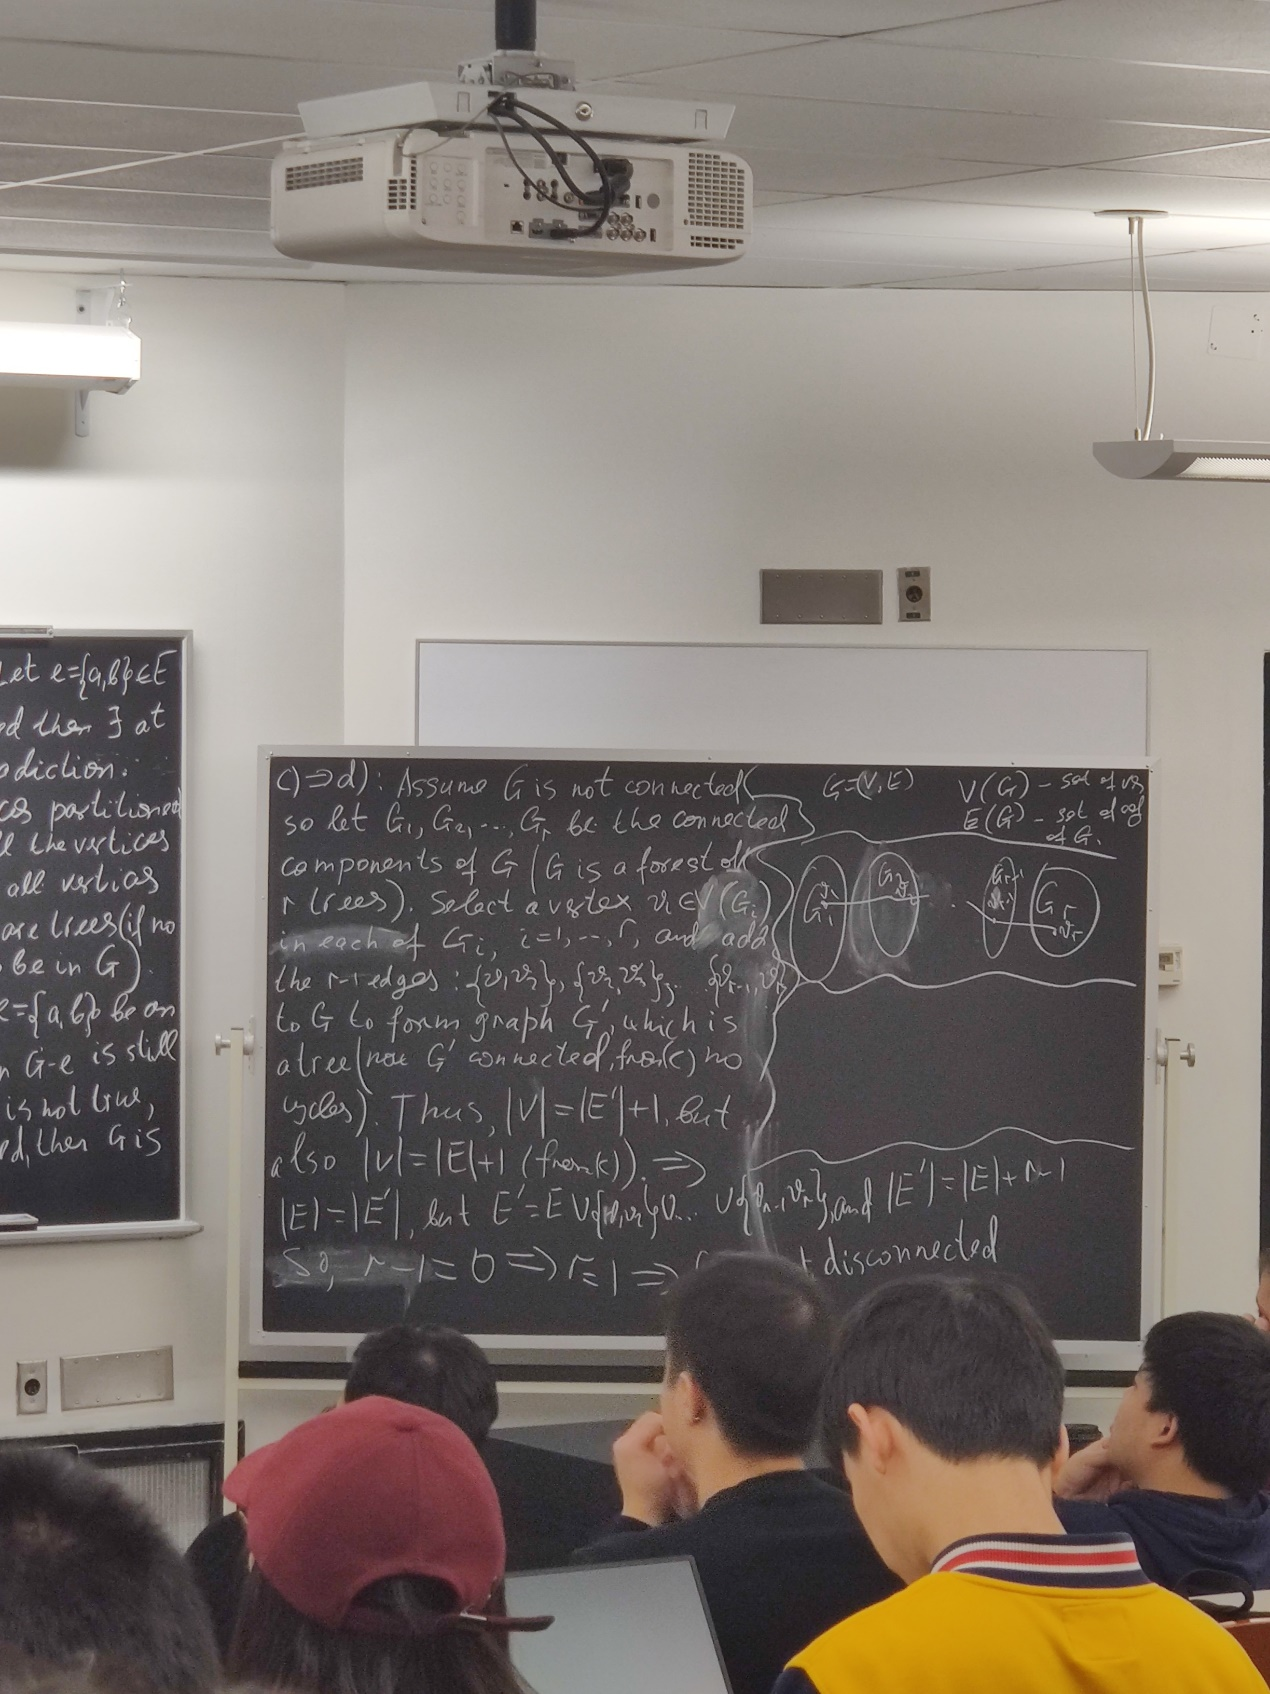 Let e={a,b}∈E
ed then ∃ at
odiction.
ces partitioned
l the vertices
all vertias
are trees (if no
be in G).
e={a,b} be an
n G-e is still
is not true,
ed, then G is
c)⇒d): Assume G is not connected
so let G₁, G₂, ..., Gᵣ be the connected
components of G (G is a forest of
r trees). Select a vertex vᵢ∈V(Gᵢ)
in each of Gᵢ, i=1,...,r, and add
the r-1 edges: {v₁,v₂}, {v₂,v₃}, ... {vᵣ₋₁,vᵣ}
to G to form graph G', which is
a tree (now G' connected, from c) no
cycles). Thus, |V|=|E'|+1, but
also |V|=|E|+1 (from c)). ⇒
|E|=|E'|, but E'=E∪{v₁,v₂}∪... ∪{vᵣ₋₁,vᵣ}, and |E'|=|E|+r-1
So, r-1=0 ⇒ r=1 ⇒ disconnected
G=(V,E)
V(G) - set of
E(G) - set of
of G.
G₁ v₁ G₂ v₂ Gᵣ₋₁ vᵣ₋₁ Gᵣ vᵣ